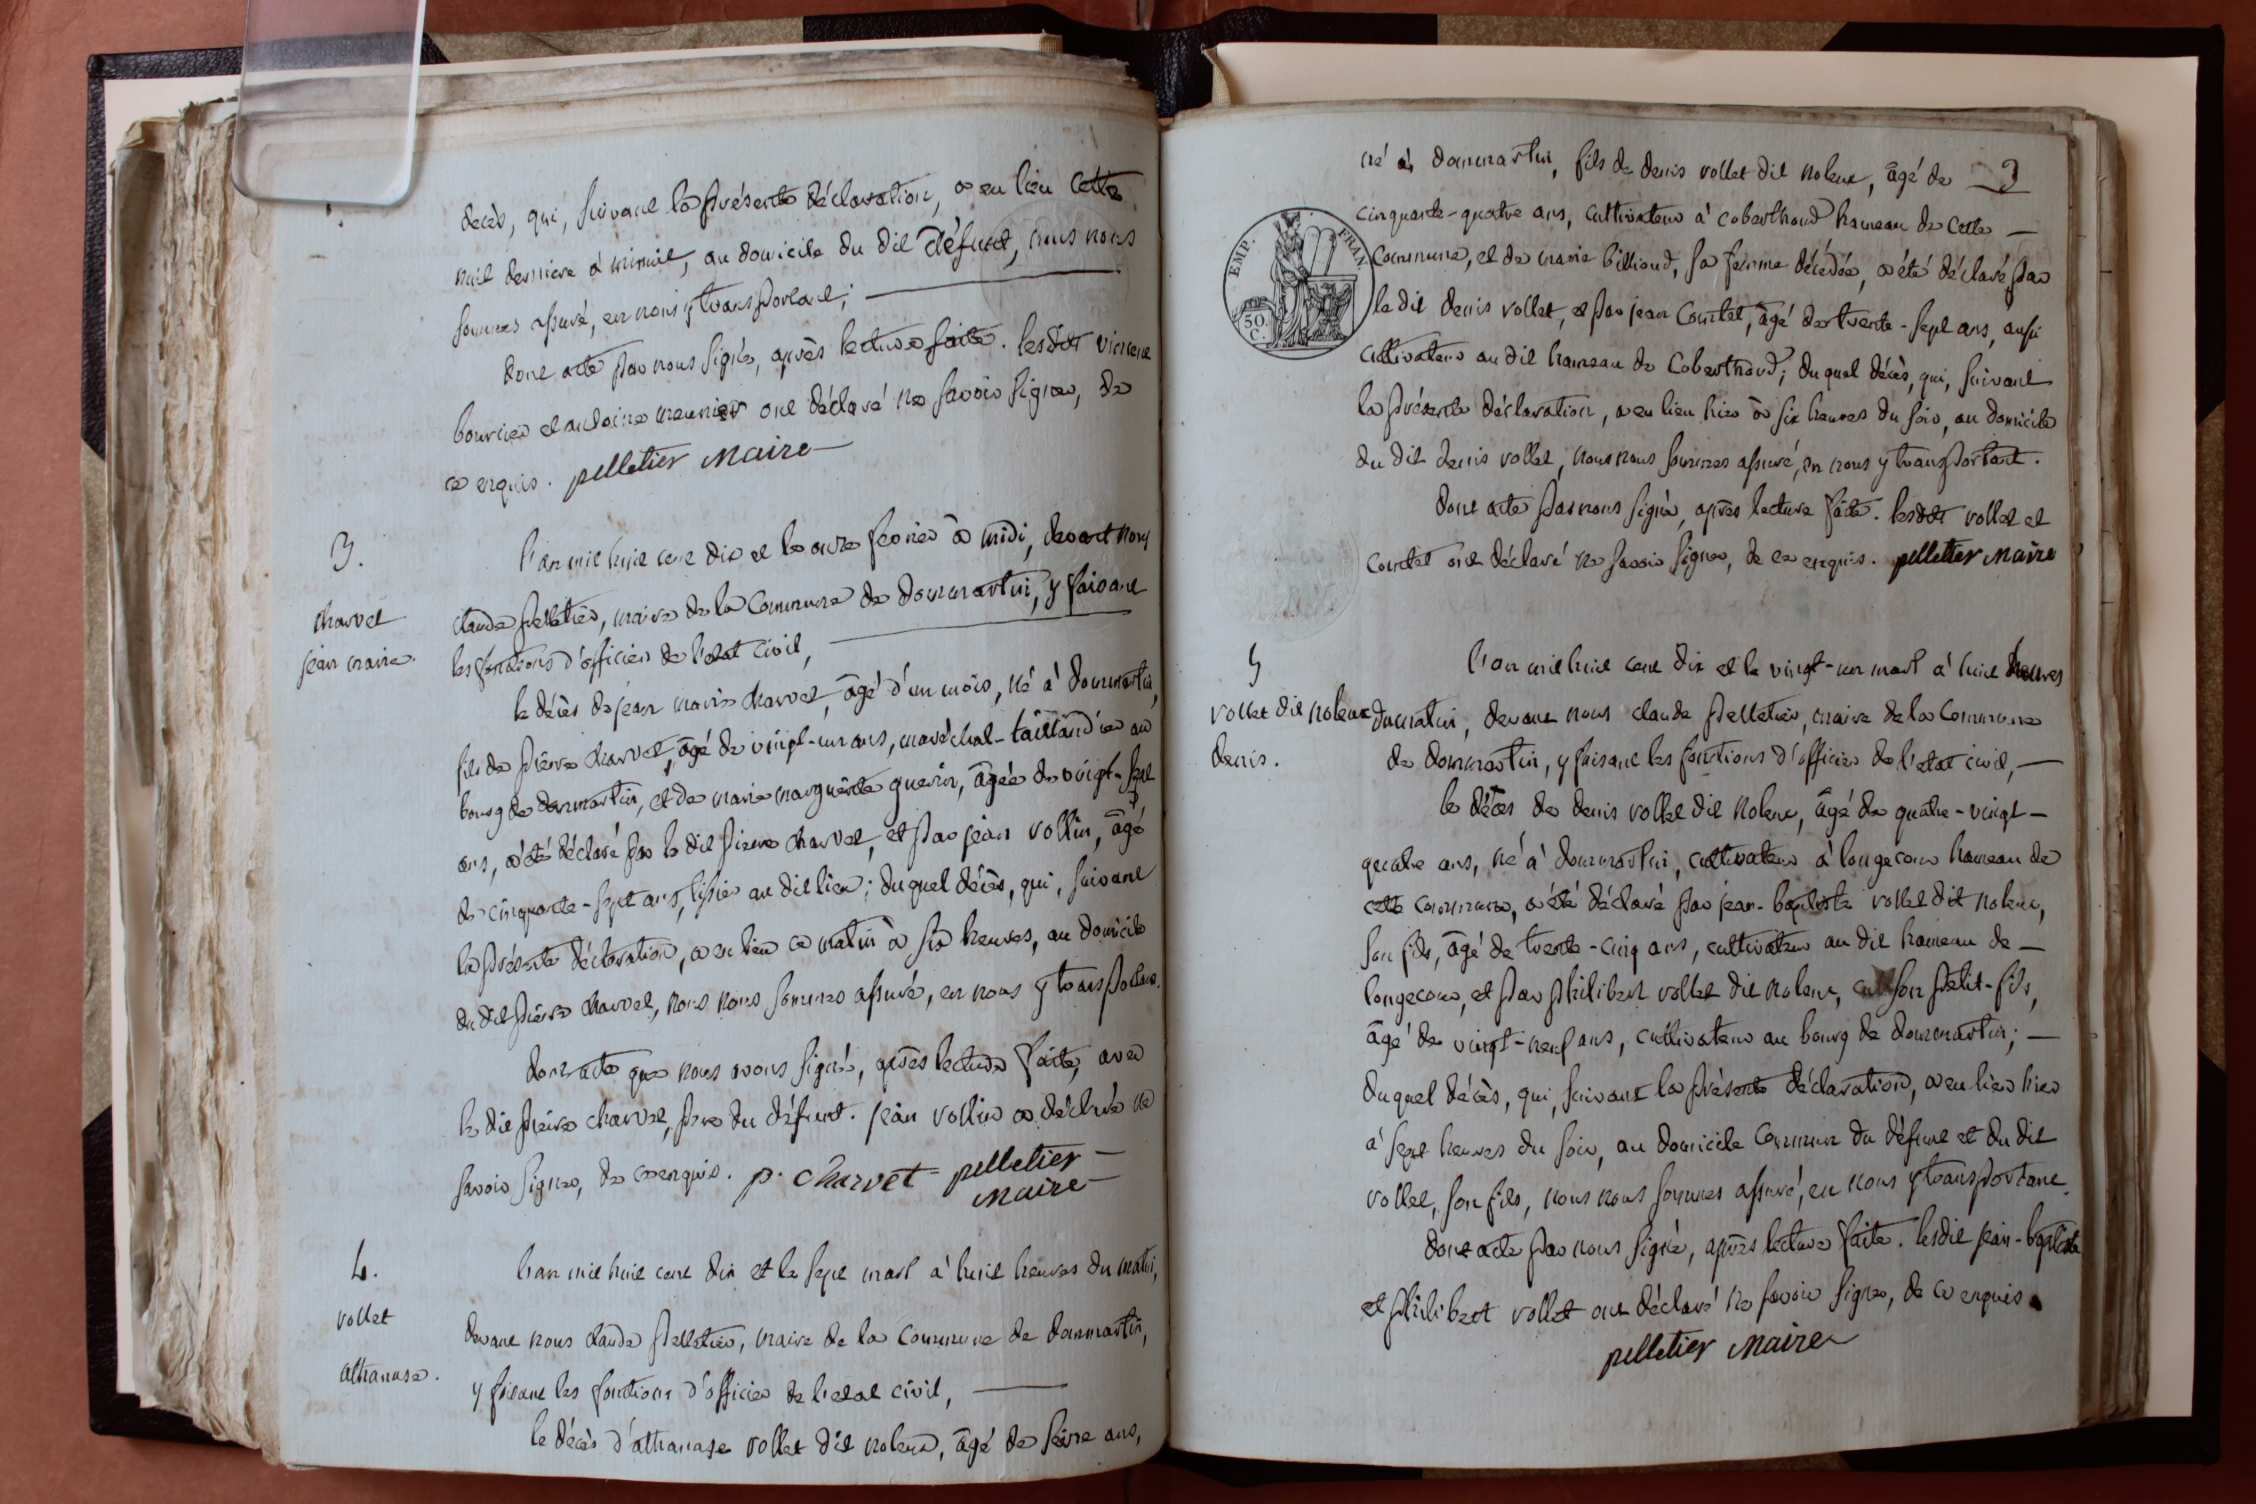 decès, qui, suivant la présente déclaration, a eu lieu cette
nuit derniere à minuit, au domicile du dit défunt, nous nous
sommes assuré, en nous y transportant;
dont acte par nous signé, après lecture faite. lesdits vincent
bourcier et antoine meunier ont déclaré ne savoir signer, de
ce enquis. pelletier Maire
3.
charvet
jean marie.
l'an mil huit cent dix et le onze fevrier à midi, devant nous
claude pelletier, maire de la Commune de dommartin, y faisant
les fonctions d'officier de l'etat civil,
le décès de jean marie charvet, âgé d'un mois, né à dommartin,
fils de pierre charvet, âgé de vingt-un ans, maréchal-taillandier au
bourg de dommartin, et de marie marguerite guerin, âgée de vingt-sept
ans, a été déclaré par le dit pierre charvet, et par jean vollin, âgé
de cinquante-sept ans, tissier au dit lieu; duquel décès, qui, suivant
la présente déclaration, a eu lieu ce matin à six heures, au domicile
du dit pierre charvet, nous nous sommes assuré, en nous y transportant.
dont acte que nous avons signé, après lecture faite, avec
le dit pierre charvet, père du défunt. jean vollin a déclaré ne
savoir signer, de ce enquis. p. charvet pelletier
Maire
4.
vollet
athanase.
l'an mil huit cent dix et le sept mars à huit heures du matin,
devant nous claude pelletier, maire de la commune de dommartin,
y faisant les fonctions d'officier de l'etat civil,
le décès d'athanase vollet dit noleur, âgé de seize ans,
3
né à dommartin, fils de denis vollet dit noleur, âgé de
cinquante-quatre ans, cultivateur à coberthoud hameau de cette
Commune, et de marie billioud, sa femme décédée, a été déclaré par
le dit denis vollet, et par jean Courtet, âgé de trente-sept ans, aussi
cultivateur au dit hameau de Coberthoud; duquel décès, qui, suivant
la présente déclaration, a eu lieu hier à six heures du soir, au domicile
du dit denis vollet, nous nous sommes assuré, en nous y transportant.
dont acte par nous signé, après lecture faite. lesdits vollet et
Courtet ont déclaré ne savoir signer, de ce enquis. pelletier Maire
EMP. FRAN.
50.
C.
5
vollet dit noleur
denis.
l'an mil huit cent dix et le vingt-un mars à huit heures
du matin, devant nous claude pelletier, maire de la Commune
de dommartin, y faisant les fonctions d'officier de l'etat civil,
le décès de denis vollet dit noleur, âgé de quatre-vingt-
quatre ans, né à dommartin, cultivateur à longecour hameau de
cette commune, a été déclaré par jean-baptiste vollet dit noleur,
son fils, âgé de trente-cinq ans, cultivateur au dit hameau de
longecour, et par philibert vollet dit noleur, son petit-fils,
âgé de vingt-neuf ans, cultivateur au bourg de dommartin;
duquel décès, qui, suivant la présente déclaration, a eu lieu hier
à sept heures du soir, au domicile commun du défunt et du dit
vollet, son fils, nous nous sommes assuré, en nous y transportant.
dont acte par nous signé, après lecture faite. lesdit jean-baptiste
et philibert vollet ont déclaré ne savoir signer, de ce enquis.
pelletier Maire